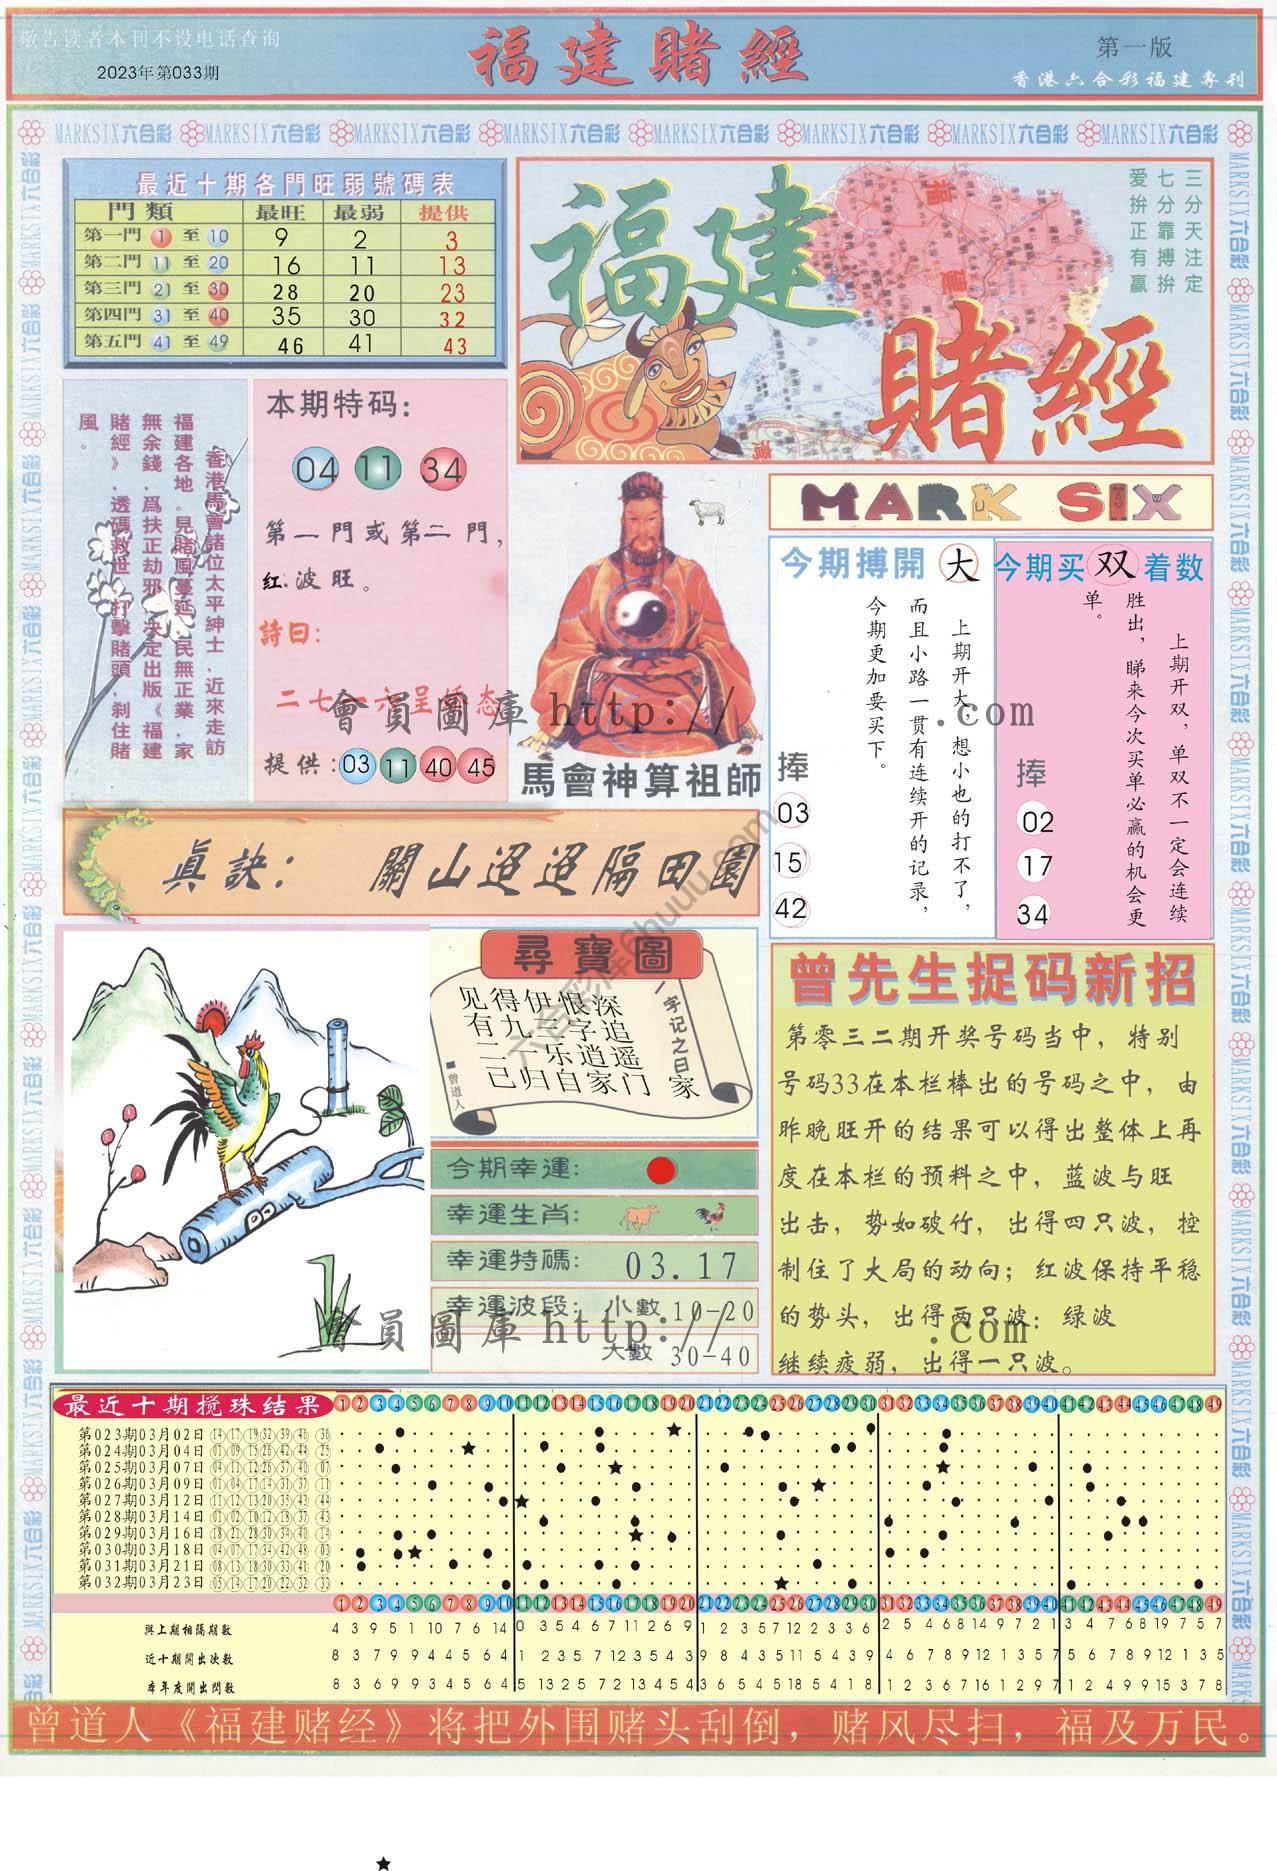 敬告读者本刊不设电话查询
2023年第033期
福建賭經
第一版
香港六合彩福建專刊
MARKSIX六合彩 MARKSIX六合彩 MARKSIX六合彩 MARKSIX六合彩 MARKSIX六合彩 MARKSIX六合彩 MARKSIX六合彩 MARKSIX六合彩
最近十期各門旺弱號碼表
門類 最旺 最弱 提供
第一門 1 至 10 9 2 3
第二門 11 至 20 16 11 13
第三門 21 至 30 28 20 23
第四門 31 至 40 35 30 32
第五門 41 至 49 46 41 43
福建
賭經
三分天注定
七分靠搏拚
爱拚正有赢
香港馬會諸位太平紳士．近來走訪
福建各地．見賭風蔓延．民無正業．家
無余錢．爲扶正劫邪．决定出版《福建
賭經》．透碼救世．打擊賭頭．刹住賭
風。
本期特码：
04 11 34
第一門或第二門，
红.波旺。
詩曰：
二七一六呈娇态
提供：03 11 40 45
馬會神算祖師
MARK SIX
今期搏開 大
上期开大，想小也的打不了，
而且小路一贯有连续开的记录，
今期更加要买下。
捧
03
15
42
今期买 双 着数
上期开双，单双不一定会连续
胜出，睇来今次买单必赢的机会更
单。
捧
02
17
34
會員圖庫 http:// .com
真訣： 關山迢迢隔田園
尋寶圖
见得伊恨深
有九三字追
二一乐逍遥
己归自家门
一字记之曰 家
■曾道人
今期幸運：
幸運生肖：
幸運特碼： 03.17
幸運波段：小數 10-20
大數 30-40
會員圖庫 http:// .com
曾先生捉码新招
第零三二期开奖号码当中，特别
号码33在本栏棒出的号码之中，由
昨晚旺开的结果可以得出整体上再
度在本栏的预料之中，蓝波与旺
出击，势如破竹，出得四只波，控
制住了大局的动向；红波保持平稳
的势头，出得两只波；绿波
继续疲弱，出得一只波。
最近十期搅珠结果 1 2 3 4 5 6 7 8 9 10 11 12 13 14 15 16 17 18 19 20 21 22 23 24 25 26 27 28 29 30 31 32 33 34 35 36 37 38 39 40 41 42 43 44 45 46 47 48 49
第023期03月02日 14 17 19 32 39 46 36
第024期03月04日 01 09 15 26 42 44 25
第025期03月07日 04 11 12 26 37 40 07
第026期03月09日 01 04 17 14 31 37 11
第027期03月12日 11 12 13 20 35 43 44
第028期03月14日 01 02 10 12 18 37 43
第029期03月16日 18 21 28 30 34 40 14
第030期03月18日 04 07 17 34 42 48 03
第031期03月21日 08 13 18 30 33 41 20
第032期03月23日 05 14 17 20 22 32 33
1 2 3 4 5 6 7 8 9 10 11 12 13 14 15 16 17 18 19 20 21 22 23 24 25 26 27 28 29 30 31 32 33 34 35 36 37 38 39 40 41 42 43 44 45 46 47 48 49
與上期相隔期數 4 3 9 5 1 10 7 6 14 0 3 5 4 6 7 11 2 6 9 1 2 3 5 7 12 2 3 3 6 2 5 4 6 8 14 9 7 2 1 3 4 7 6 8 19 7 5 7
近十期開出次數 8 3 7 9 9 4 4 5 6 4 1 2 3 5 7 12 3 5 4 3 9 8 5 4 4 5 4 3 9 4 6 7 8 9 12 1 3 5 7 1 2 6 7 8 9 12 3 5
本年度開出問數 8 3 6 9 8 4 3 5 6 4 5 13 2 5 7 2 3 5 4 4 3 6 5 4 5 18 5 4 1 8 1 2 3 6 7 16 1 2 9 7 1 2 4 9 9 15 3 7 8
曾道人《福建赌经》将把外围赌头刮倒，赌风尽扫，福及万民。